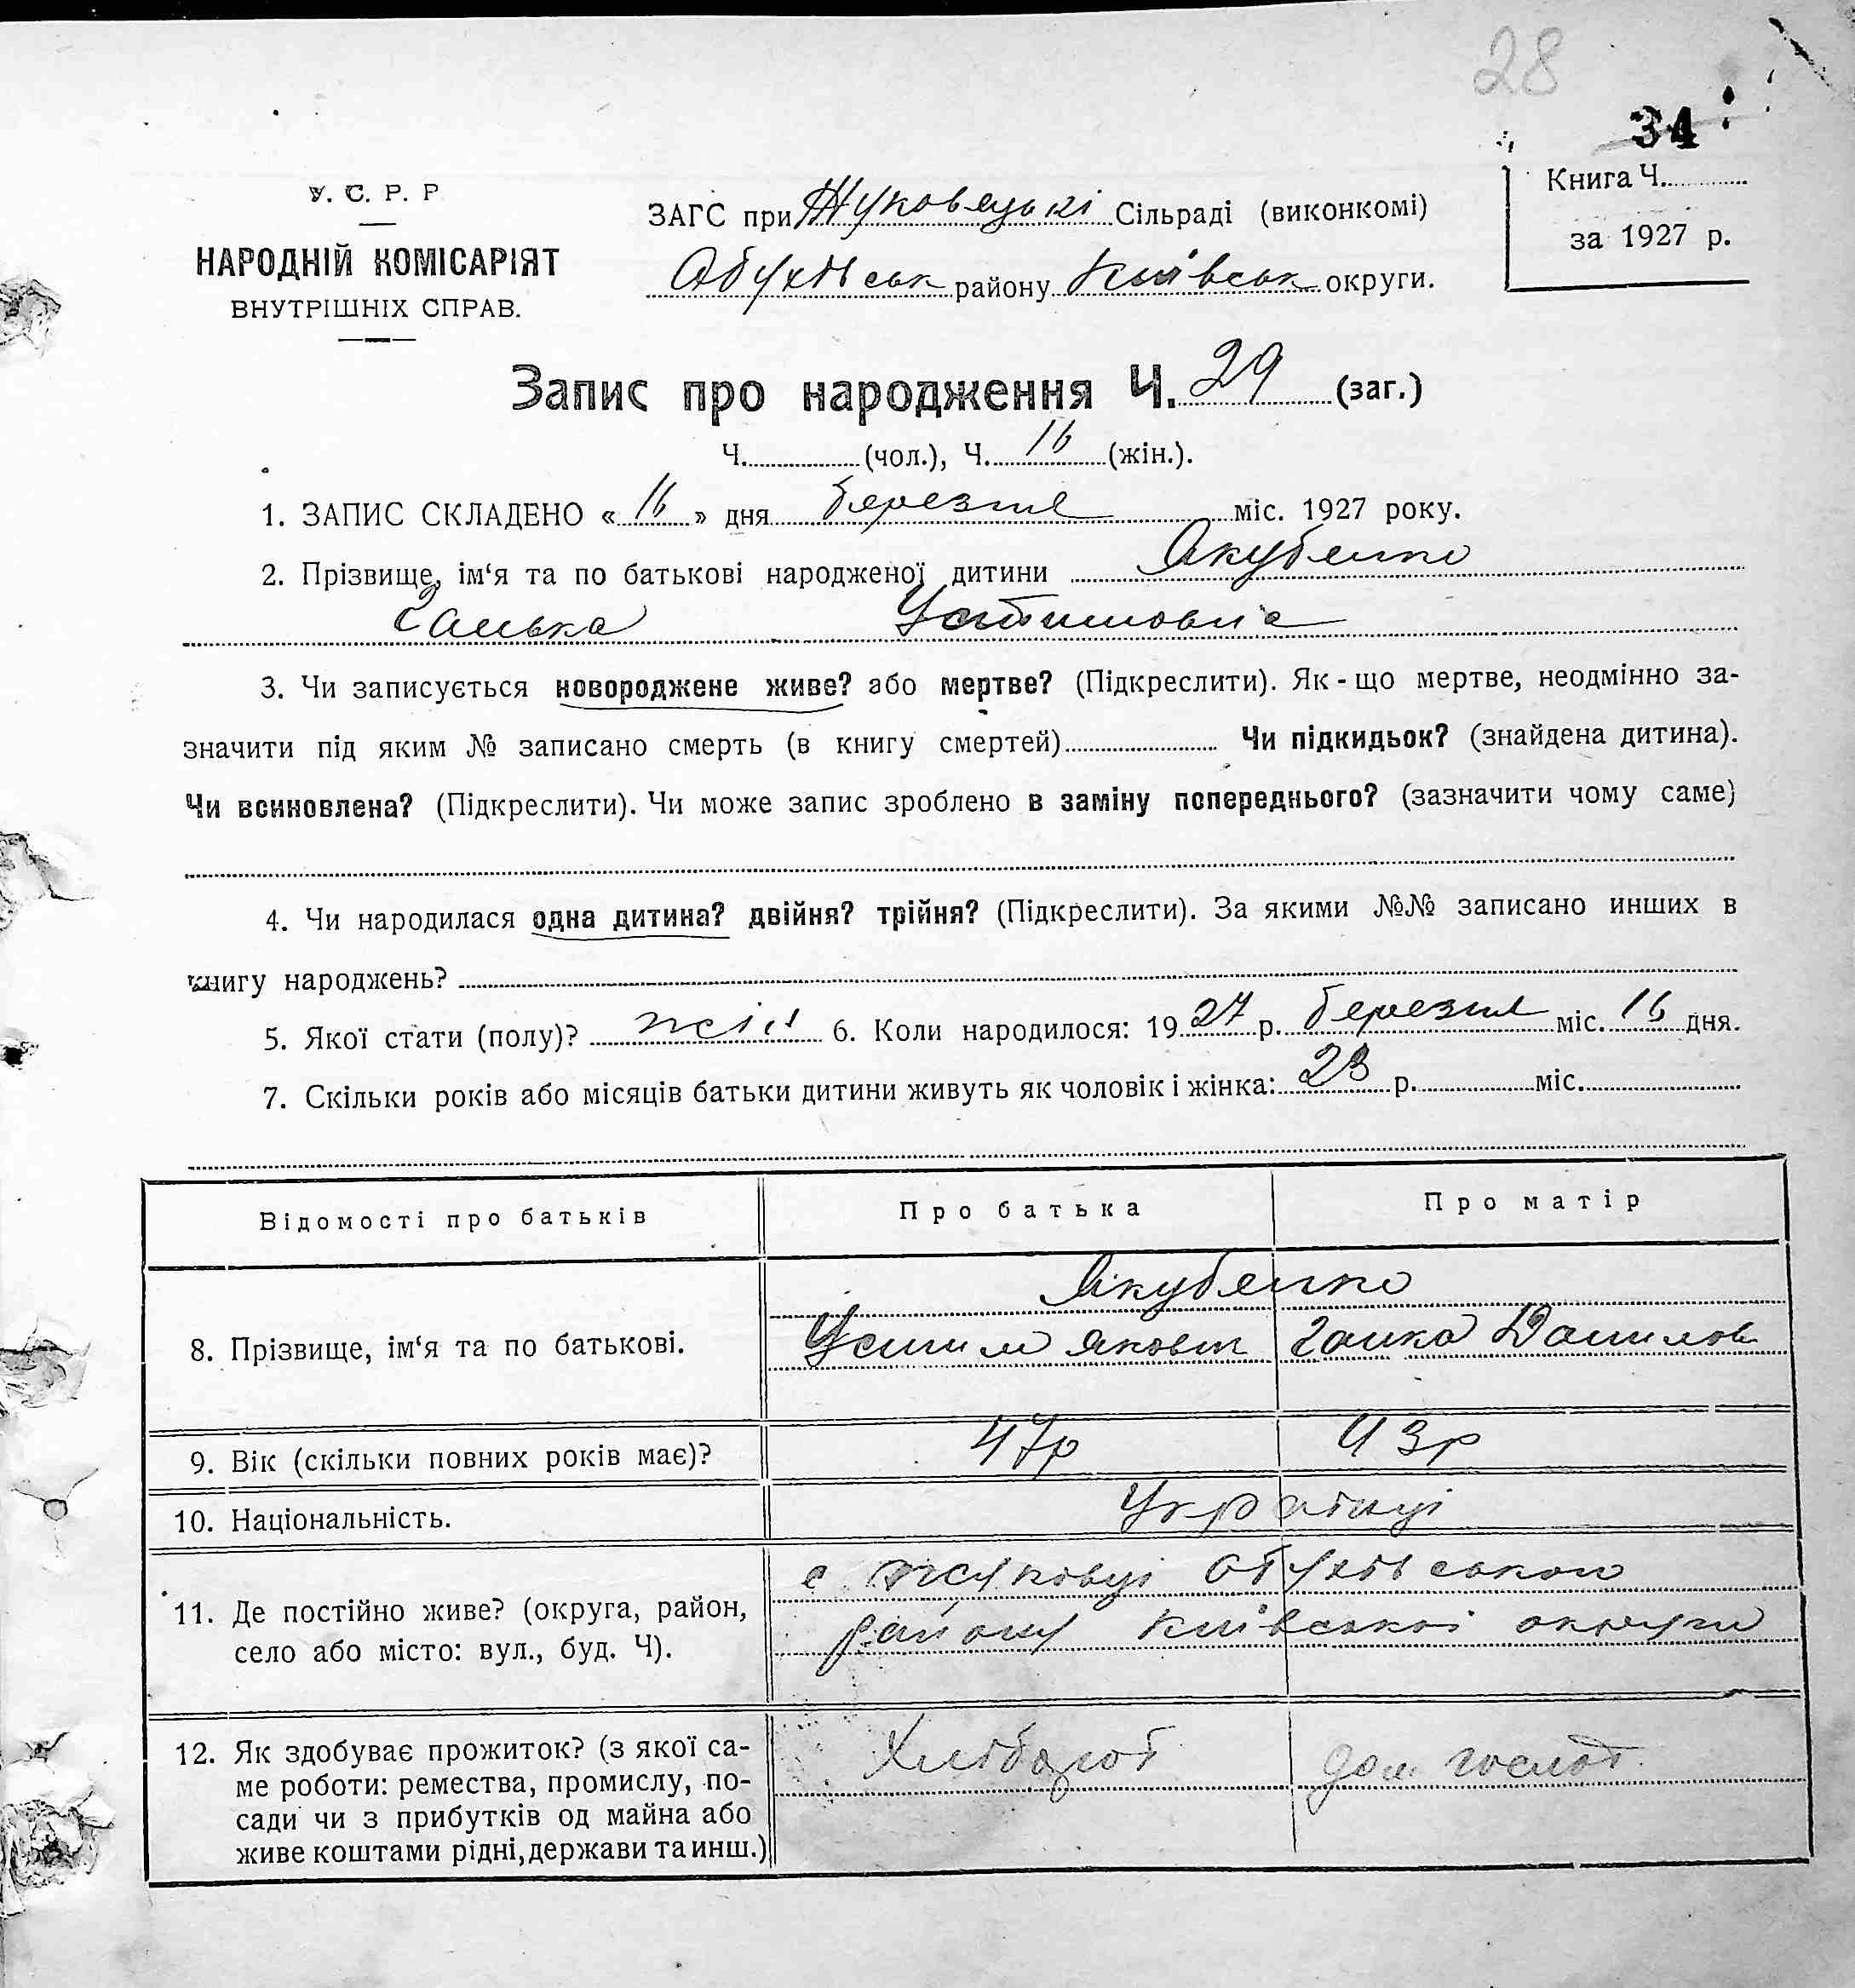 28
34
У. С. Р. Р.
НАРОДНІЙ КОМІСАРІЯТ
ВНУТРІШНІХ СПРАВ.
ЗАГС при Жуковецькі Сільраді (виконкомі)
Обухівськ району Київськ округи.
Книга Ч.
за 1927 р.
Запис про народження Ч. 29 (заг.)
Ч. (чол.), Ч. 16 (жін.).
1. ЗАПИС СКЛАДЕНО « 16 » дня березня міс. 1927 року.
2. Прізвище, ім‘я та по батькові народженої дитини Якубенко
Ганька Устимовна
3. Чи записується новороджене живе? або мертве? (Підкреслити). Як-що мертве, неодмінно за-
значити під яким № записано смерть (в книгу смертей) Чи підкидьок? (знайдена дитина).
Чи всиновлена? (Підкреслити). Чи може запис зроблено в заміну попереднього? (зазначити чому саме)
4. Чи народилася одна дитина? двійня? трійня? (Підкреслити). За якими №№ записано инших в
книгу народжень?
5. Якої стати (полу)? жін 6. Коли народилося: 1927 р. березня міс. 16 дня.
7. Скільки років або місяців батьки дитини живуть як чоловік і жінка: 23 р. міс.
Відомості про батьків Про батька Про матір
Якубенко
8. Прізвище, ім‘я та по батькові. Устим Якович Ганка Данилов
9. Вік (скільки повних років має)? 47р 43р
10. Національність. Українці
с Жуковці Обухівського
11. Де постійно живе? (округа, район,
району Київської округи
село або місто: вул., буд. Ч).
12. Як здобуває прожиток? (з якої са- Хлібороб дом. господ.
ме роботи: ремества, промислу, по-
сади чи з прибутків од майна або
живе коштами рідні, держави та инш.)